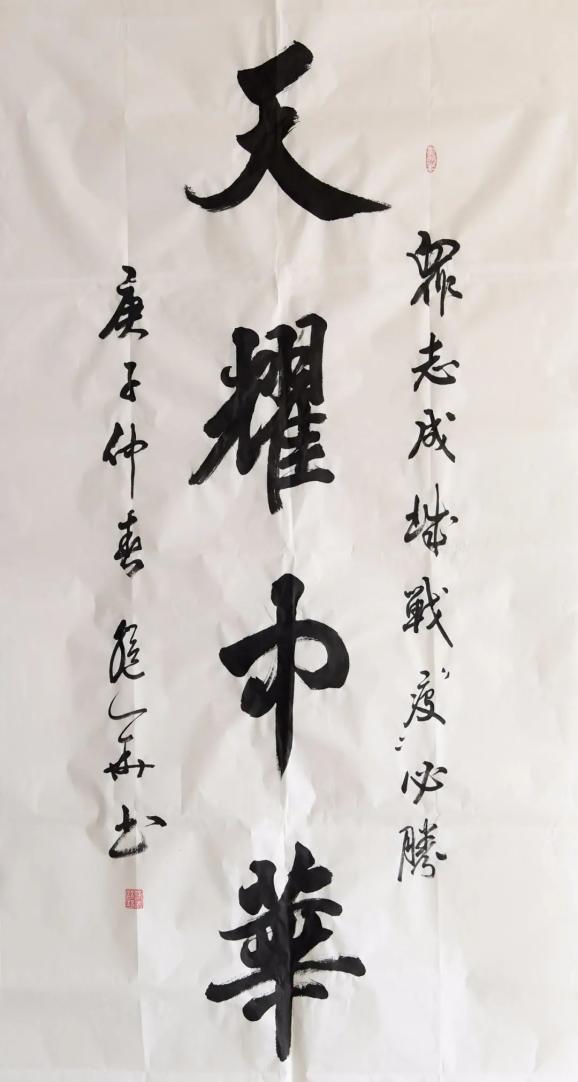 眾志成城戰"疫"必勝
天耀中華
庚子仲春 書